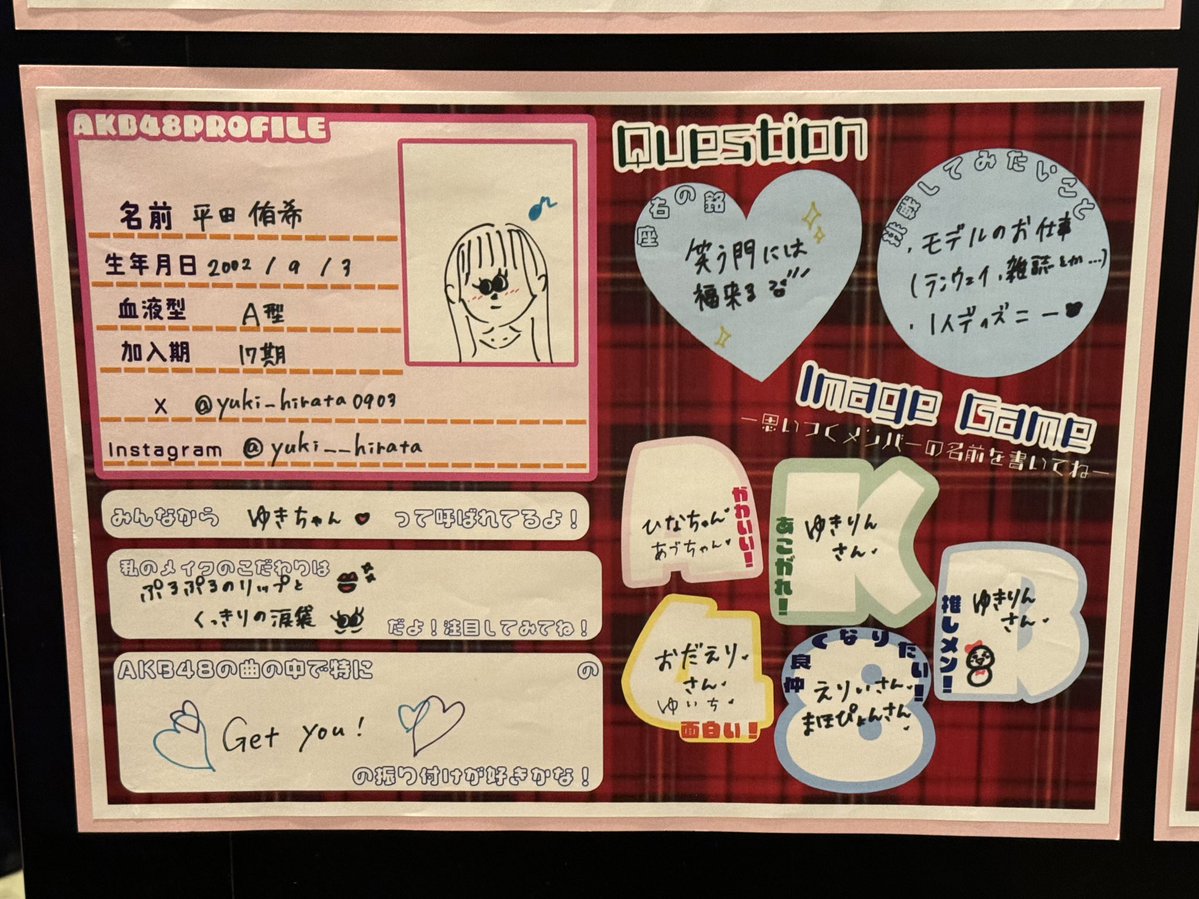 AKB48PROFILE
名前 平田侑希
生年月日 2002 / 9 / 3
血液型 A型
加入期 17期
X @yuki_hirata0903
Instagram @yuki__hirata
みんなから ゆきちゃん って呼ばれてるよ!
私のメイクのこだわりは
ぷるぷるのリップと
くっきりの涙袋
だよ!注目してみてね!
AKB48の曲の中で特に の
Get you!
の振り付けが好きかな!
Question
座右の銘
笑う門には
福来る
挑戦してみたいこと
・モデルのお仕事
(ランウェイ、雑誌とか…)
・1人ディズニー
Image Game
ー思いつくメンバーの名前を書いてねー
かわいい!
ひなちゃん
あづちゃん
あこがれ!
ゆきりん
さん
推しメン!
ゆきりん
さん
おだえり
さん
ゆいち
面白い!
仲良くなりたい!
えりいさん
まほぴょんさん